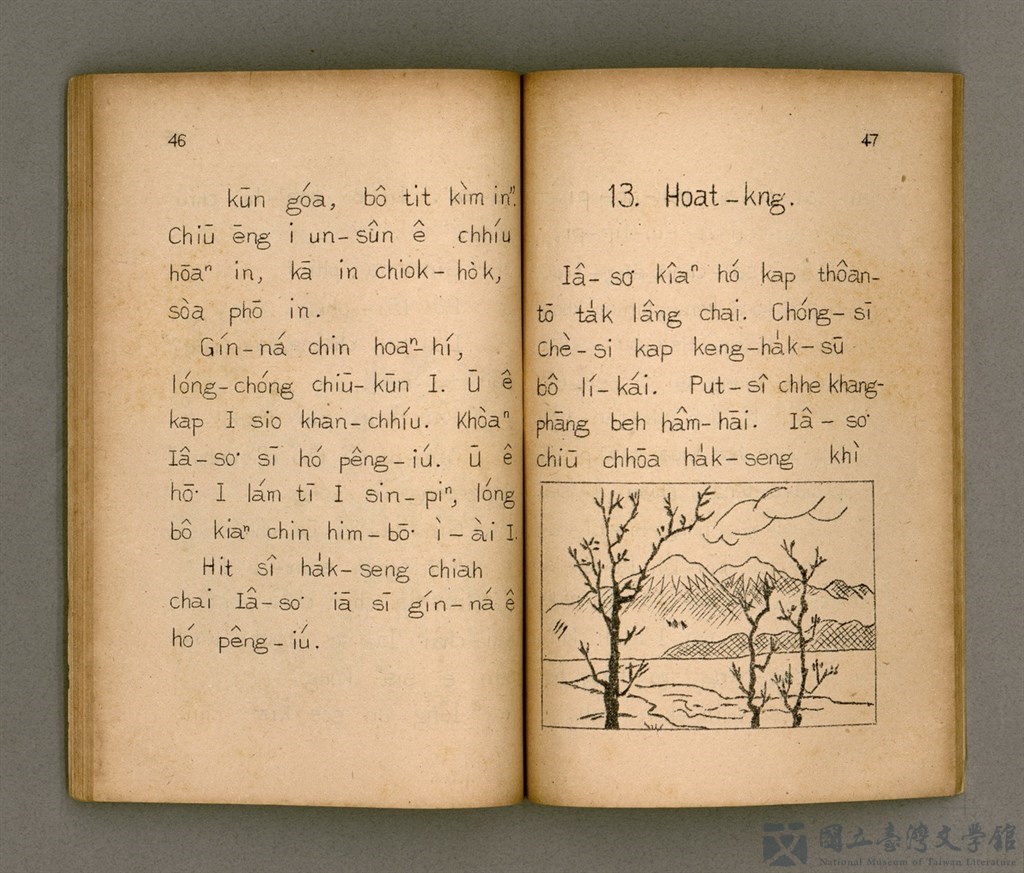 46
kūn góa, bô tit kìm inⁿ.
Chiū ēng i un-sûn ê chhíu
hōaⁿ in, kā in chiok-hòk,
sòa phō in.
Gín-ná chin hoaⁿ-hí,
lóng-chóng chiū-kūn I. Ū ê
kap I sio khan-chhíu. Khòaⁿ
Iâ-so͘ sī hó pêng-iú. Ū ê
hō͘ I lám tī I sin-piⁿ, lóng
bô kiaⁿ chin him-bō͘ ì-ài I.
Hit sî ha̍k-seng chiah
chai Iâ-so͘ iā sī gín-ná ê
hó pêng-iú.
47
13. Hoat-kng.
Iâ-sơ kîaⁿ hó kap thôan-
tō ta̍k lâng chai. Chóng-sī
Chè-si kap keng-ha̍k-sū
bô lí-kái. Put-sî chhe khang-
phāng beh hâm-hāi. Iâ-so͘
chiū chhōa ha̍k-seng khì
國立臺灣文學館
National Museum of Taiwan Literature